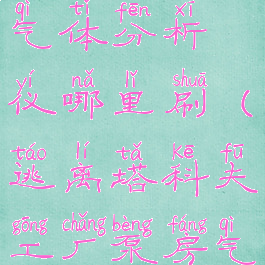 qì tǐ fēn xī
气体分析
yí nǎ lǐ shuā
仪哪里刷(
táo lí tǎ kē fū
逃离塔科夫
gōng chǎng bèng fáng qì
工厂泵房气